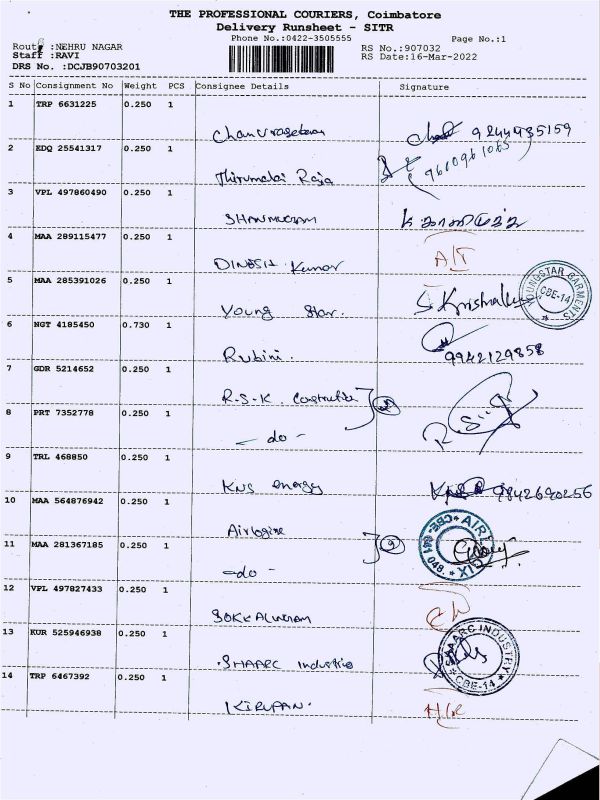 THE PROFESSIONAL COURIERS, Coimbatore
Delivery Runsheet - SITR
Phone No.:0422-3505555 Page No.:1
Route :NEHRU NAGAR RS No.:907032
Staff :RAVI RS Date:16-Mar-2022
DRS No. :DCJB90703201
S No Consignment No Weight PCS Consignee Details Signature
1 TRP 6631225 0.250 1
9244935159
2 EDQ 25541317 0.250 1
Thirumalai Raja
3 VPL 497860490 0.250 1
SHANMUGAM
4 MAA 289115477 0.250 1
DINESH Kumar
5 MAA 285391026 0.250 1
Young Star. YOUNGSTAR GARMENTS CBE-14
6 NGT 4185450 0.730 1
Rubini. 9942129858
7 GDR 5214652 0.250 1
R.S.K. Construction
8 PRT 7352778 0.250 1
- do -
9 TRL 468850 0.250 1
KNS energy 9842690256
10 MAA 564876942 0.250 1
CBE- 641 048.
11 MAA 281367185 0.250 1
- do -
12 VPL 497827433 0.250 1
13 KUR 525946938 0.250 1
SHAARC Industrie SHAARC INDUSTRY CBE-14
14 TRP 6467392 0.250 1
KIRUPAN.